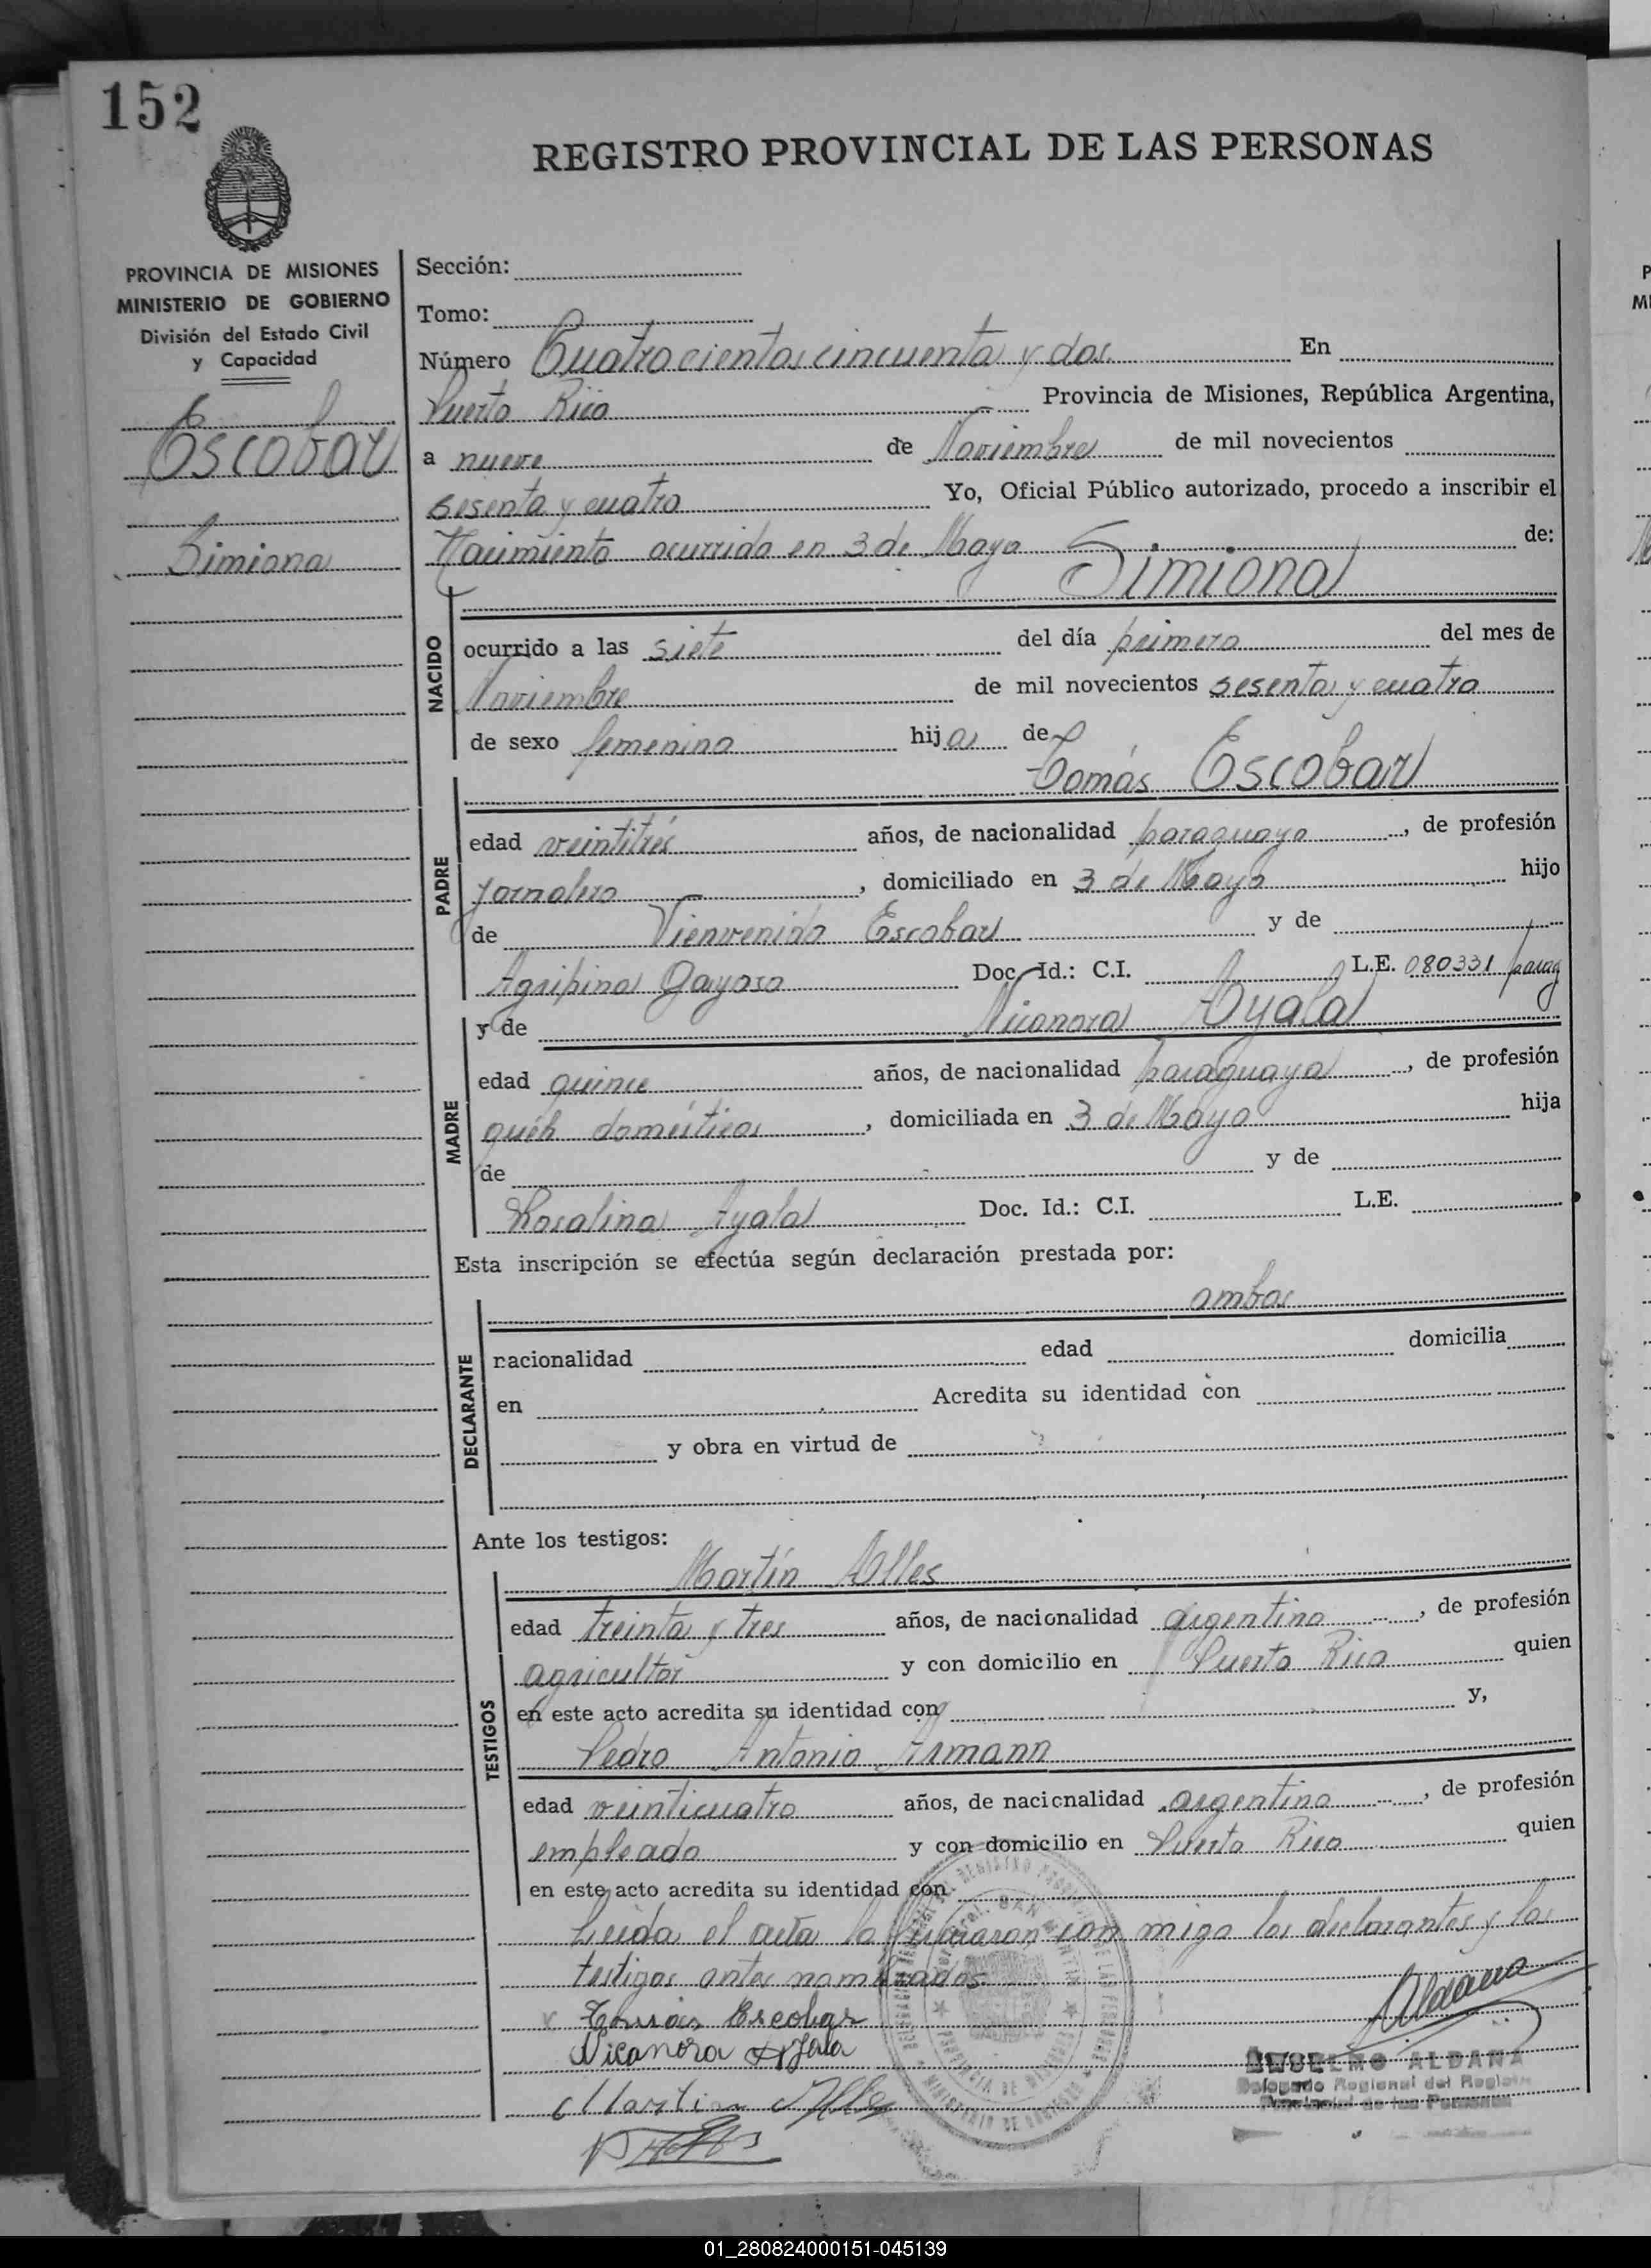 152
REGISTRO PROVINCIAL DE LAS PERSONAS
PROVINCIA DE MISIONES
MINISTERIO DE GOBIERNO
División del Estado Civil
y Capacidad
Escobar
Simiona
Sección:
Tomo:
Número Cuatrocientos cincuenta y dos En
Puerto Rico Provincia de Misiones, República Argentina,
a nueve de Noviembre de mil novecientos
sesenta y cuatro Yo, Oficial Público autorizado, procedo a inscribir el
Nacimiento ocurrido en 3 de Mayo de:
Simiona
NACIDO
ocurrido a las siete del día primero del mes de
Noviembre de mil novecientos sesenta y cuatro
de sexo femenino hija de
Tomás Escobar
PADRE
edad veintitrés años, de nacionalidad paraguaya, de profesión
jornalero, domiciliado en 3 de Mayo hijo
de Vienvenido Escobar y de
Agripina Gayoso Doc. Id.: C.I. L.E. 080331 parag
y de Nicanora Ayala
MADRE
edad quince años, de nacionalidad paraguaya, de profesión
quéh domésticos, domiciliada en 3 de Mayo hija
de y de
Rosalina Ayala Doc. Id.: C.I. L.E.
Esta inscripción se efectúa según declaración prestada por:
ambos
DECLARANTE
nacionalidad edad domicilia
en Acredita su identidad con
y obra en virtud de
Ante los testigos:
Martín Alles
TESTIGOS
edad treinta y tres años, de nacionalidad argentino, de profesión
agricultor y con domicilio en Puerto Rico quien
en este acto acredita su identidad con y,
Pedro Antonio Asmann
edad veinticuatro años, de nacionalidad argentino, de profesión
empleado y con domicilio en Puerto Rico quien
en este acto acredita su identidad con
Leida el acta la firmaron con migo los declarantes y los
testigos antes nombrados
Tomás Escobar
Nicanora Ayala
Martin Alles
Aldana
ANSELMO ALDANA
Delegado Regional del Registro
Provincial de las Personas
01_280824000151-045139